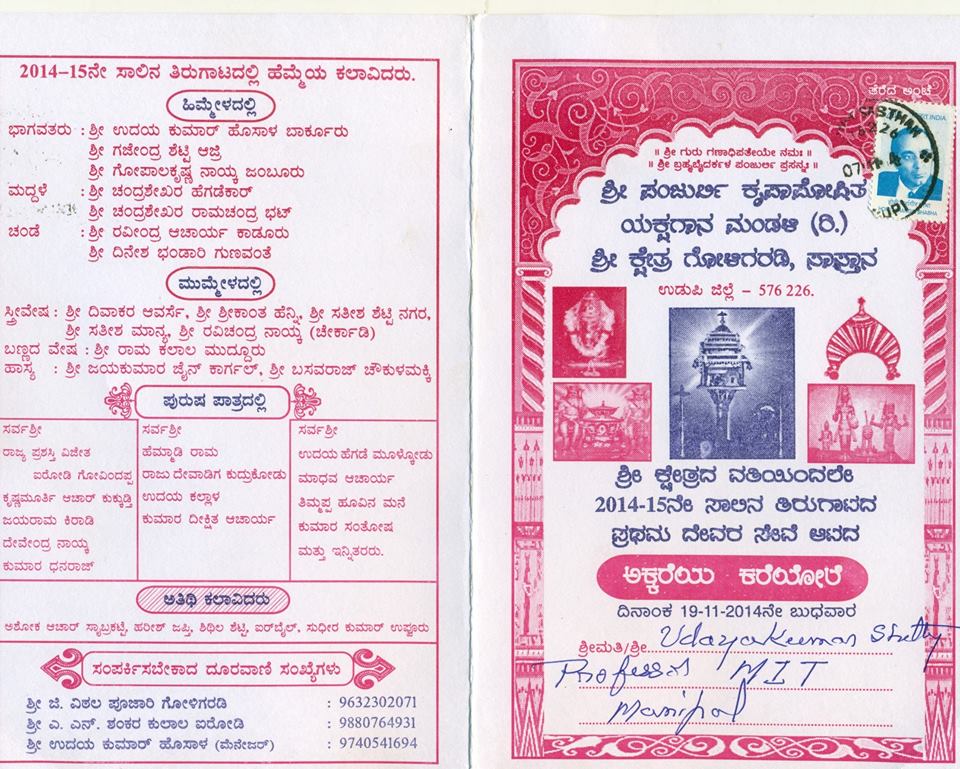 2014-15ನೇ ಸಾಲಿನ ತಿರುಗಾಟದಲ್ಲಿ ಹೆಮ್ಮೆಯ ಕಲಾವಿದರು.
ಹಿಮ್ಮೇಳದಲ್ಲಿ
ಭಾಗವತರು : ಶ್ರೀ ಉದಯ ಕುಮಾರ್ ಹೊಸಾಳ ಬಾರ್ಕೂರು
ಶ್ರೀ ಗಜೇಂದ್ರ ಶೆಟ್ಟಿ ಆಜ್ರಿ
ಶ್ರೀ ಗೋಪಾಲಕೃಷ್ಣ ನಾಯ್ಕ ಜಂಬೂರು
ಮದ್ದಳೆ : ಶ್ರೀ ಚಂದ್ರಶೇಖರ ಹೆಗಡೆಕಾರ್
ಶ್ರೀ ಚಂದ್ರಶೇಖರ ರಾಮಚಂದ್ರ ಭಟ್
ಚಂಡೆ : ಶ್ರೀ ರವೀಂದ್ರ ಆಚಾರ್ಯ ಕಾಡೂರು
ಶ್ರೀ ದಿನೇಶ ಭಂಡಾರಿ ಗುಣವಂತೆ
ಮುಮ್ಮೇಳದಲ್ಲಿ
ಸ್ತ್ರೀವೇಷ : ಶ್ರೀ ದಿವಾಕರ ಆವರ್ಸೆ, ಶ್ರೀ ಶ್ರೀಕಾಂತ ಹೆನ್ನಿ, ಶ್ರೀ ಸತೀಶ ಶೆಟ್ಟಿ ನಗರ,
ಶ್ರೀ ಸತೀಶ ಮಾನ್ಯ, ಶ್ರೀ ರವಿಚಂದ್ರ ನಾಯ್ಕ (ಚೇರ್ಕಾಡಿ)
ಬಣ್ಣದ ವೇಷ : ಶ್ರೀ ರಾಮ ಕಲಾಲ ಮುದ್ದೂರು
ಹಾಸ್ಯ : ಶ್ರೀ ಜಯಕುಮಾರ ಜೈನ್ ಕಾರ್ಗಲ್, ಶ್ರೀ ಬಸವರಾಜ್ ಚೌಕುಳಮಕ್ಕಿ
ಪುರುಷ ಪಾತ್ರದಲ್ಲಿ
ಸರ್ವಶ್ರೀ
ರಾಜ್ಯ ಪ್ರಶಸ್ತಿ ವಿಜೇತ
ಐರೋಡಿ ಗೋವಿಂದಪ್ಪ
ಕೃಷ್ಣಮೂರ್ತಿ ಆಚಾರ್ ಕುಕ್ಕುಡ್ತಿ
ಜಯರಾಮ ಕಿರಾಡಿ
ದೇವೇಂದ್ರ ನಾಯ್ಕ
ಕುಮಾರ ಧನರಾಜ್
ಸರ್ವಶ್ರೀ
ಹೆಮ್ಮಾಡಿ ರಾಮ
ರಾಜು ದೇವಾಡಿಗ ಕುದ್ರುಕೋಡು
ಉದಯ ಕಲ್ಲಾಳ
ಕುಮಾರ ದೀಕ್ಷಿತ ಆಚಾರ್ಯ
ಸರ್ವಶ್ರೀ
ಉದಯ ಹೆಗಡೆ ಮೂಳ್ಕೋಡು
ಮಾಧವ ಆಚಾರ್ಯ
ತಿಮ್ಮಪ್ಪ ಹೂವಿನ ಮನೆ
ಕುಮಾರ ಸಂತೋಷ
ಮತ್ತು ಇನ್ನಿತರರು.
ಅತಿಥಿ ಕಲಾವಿದರು
ಅಶೋಕ ಆಚಾರ್ ಸ್ಯಾಬ್ರಕಟ್ಟೆ, ಹರೀಶ್ ಜಪ್ತಿ, ಶಿಥಿಲ ಶೆಟ್ಟಿ, ಐರ್‌ಬೈಲ್, ಸುಧೀರ ಕುಮಾರ್ ಉಪ್ಪೂರು
ಸಂಪರ್ಕಿಸಬೇಕಾದ ದೂರವಾಣಿ ಸಂಖ್ಯೆಗಳು
ಶ್ರೀ ಜಿ. ವಿಠಲ ಪೂಜಾರಿ ಗೋಳಿಗರಡಿ : 9632302071
ಶ್ರೀ ಎ. ಎನ್. ಶಂಕರ ಕುಲಾಲ ಐರೋಡಿ : 9880764931
ಶ್ರೀ ಉದಯ ಕುಮಾರ್ ಹೊಸಾಳ (ಮೆನೇಜರ್) : 9740541694
ತೆರೆದ ಅಂಚೆ
॥ ಶ್ರೀ ಗುರು ಗಣಾಧಿಪತೇಯೇ ನಮಃ ॥
॥ ಶ್ರೀ ಬ್ರಹ್ಮಬೈದರ್ಕಳ ಪಂಜುರ್ಲಿ ಪ್ರಸನ್ನಃ ॥
ಶ್ರೀ ಪಂಜುರ್ಲಿ ಕೃಪಾಪೋಷಿತ
ಯಕ್ಷಗಾನ ಮಂಡಳಿ (ರಿ.)
ಶ್ರೀ ಕ್ಷೇತ್ರ ಗೋಳಿಗರಡಿ, ಸಾಸ್ತಾನ
ಉಡುಪಿ ಜಿಲ್ಲೆ – 576 226.
ಶ್ರೀ ಕ್ಷೇತ್ರದ ವತಿಯಿಂದಲೇ
2014-15ನೇ ಸಾಲಿನ ತಿರುಗಾಟದ
ಪ್ರಥಮ ದೇವರ ಸೇವೆ ಆಟದ
ಅಕ್ಕರೆಯ ಕರೆಯೋಲೆ
ದಿನಾಂಕ 19-11-2014ನೇ ಬುಧವಾರ
ಶ್ರೀಮತಿ/ಶ್ರೀ Udayakumar Shetty
Professor MIT
Manipal